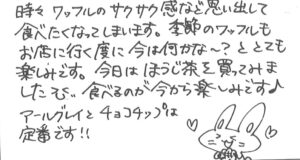 時々ワッフルのサクサク感など思い出して
食べたくなってしまいます。季節のワッフルも
お店に行く度に今は何かな～？ととても
楽しみです。今日はほうじ茶を買ってみま
したので、食べるのが今から楽しみです♪
アールグレイとチョコチップは
定番です!!